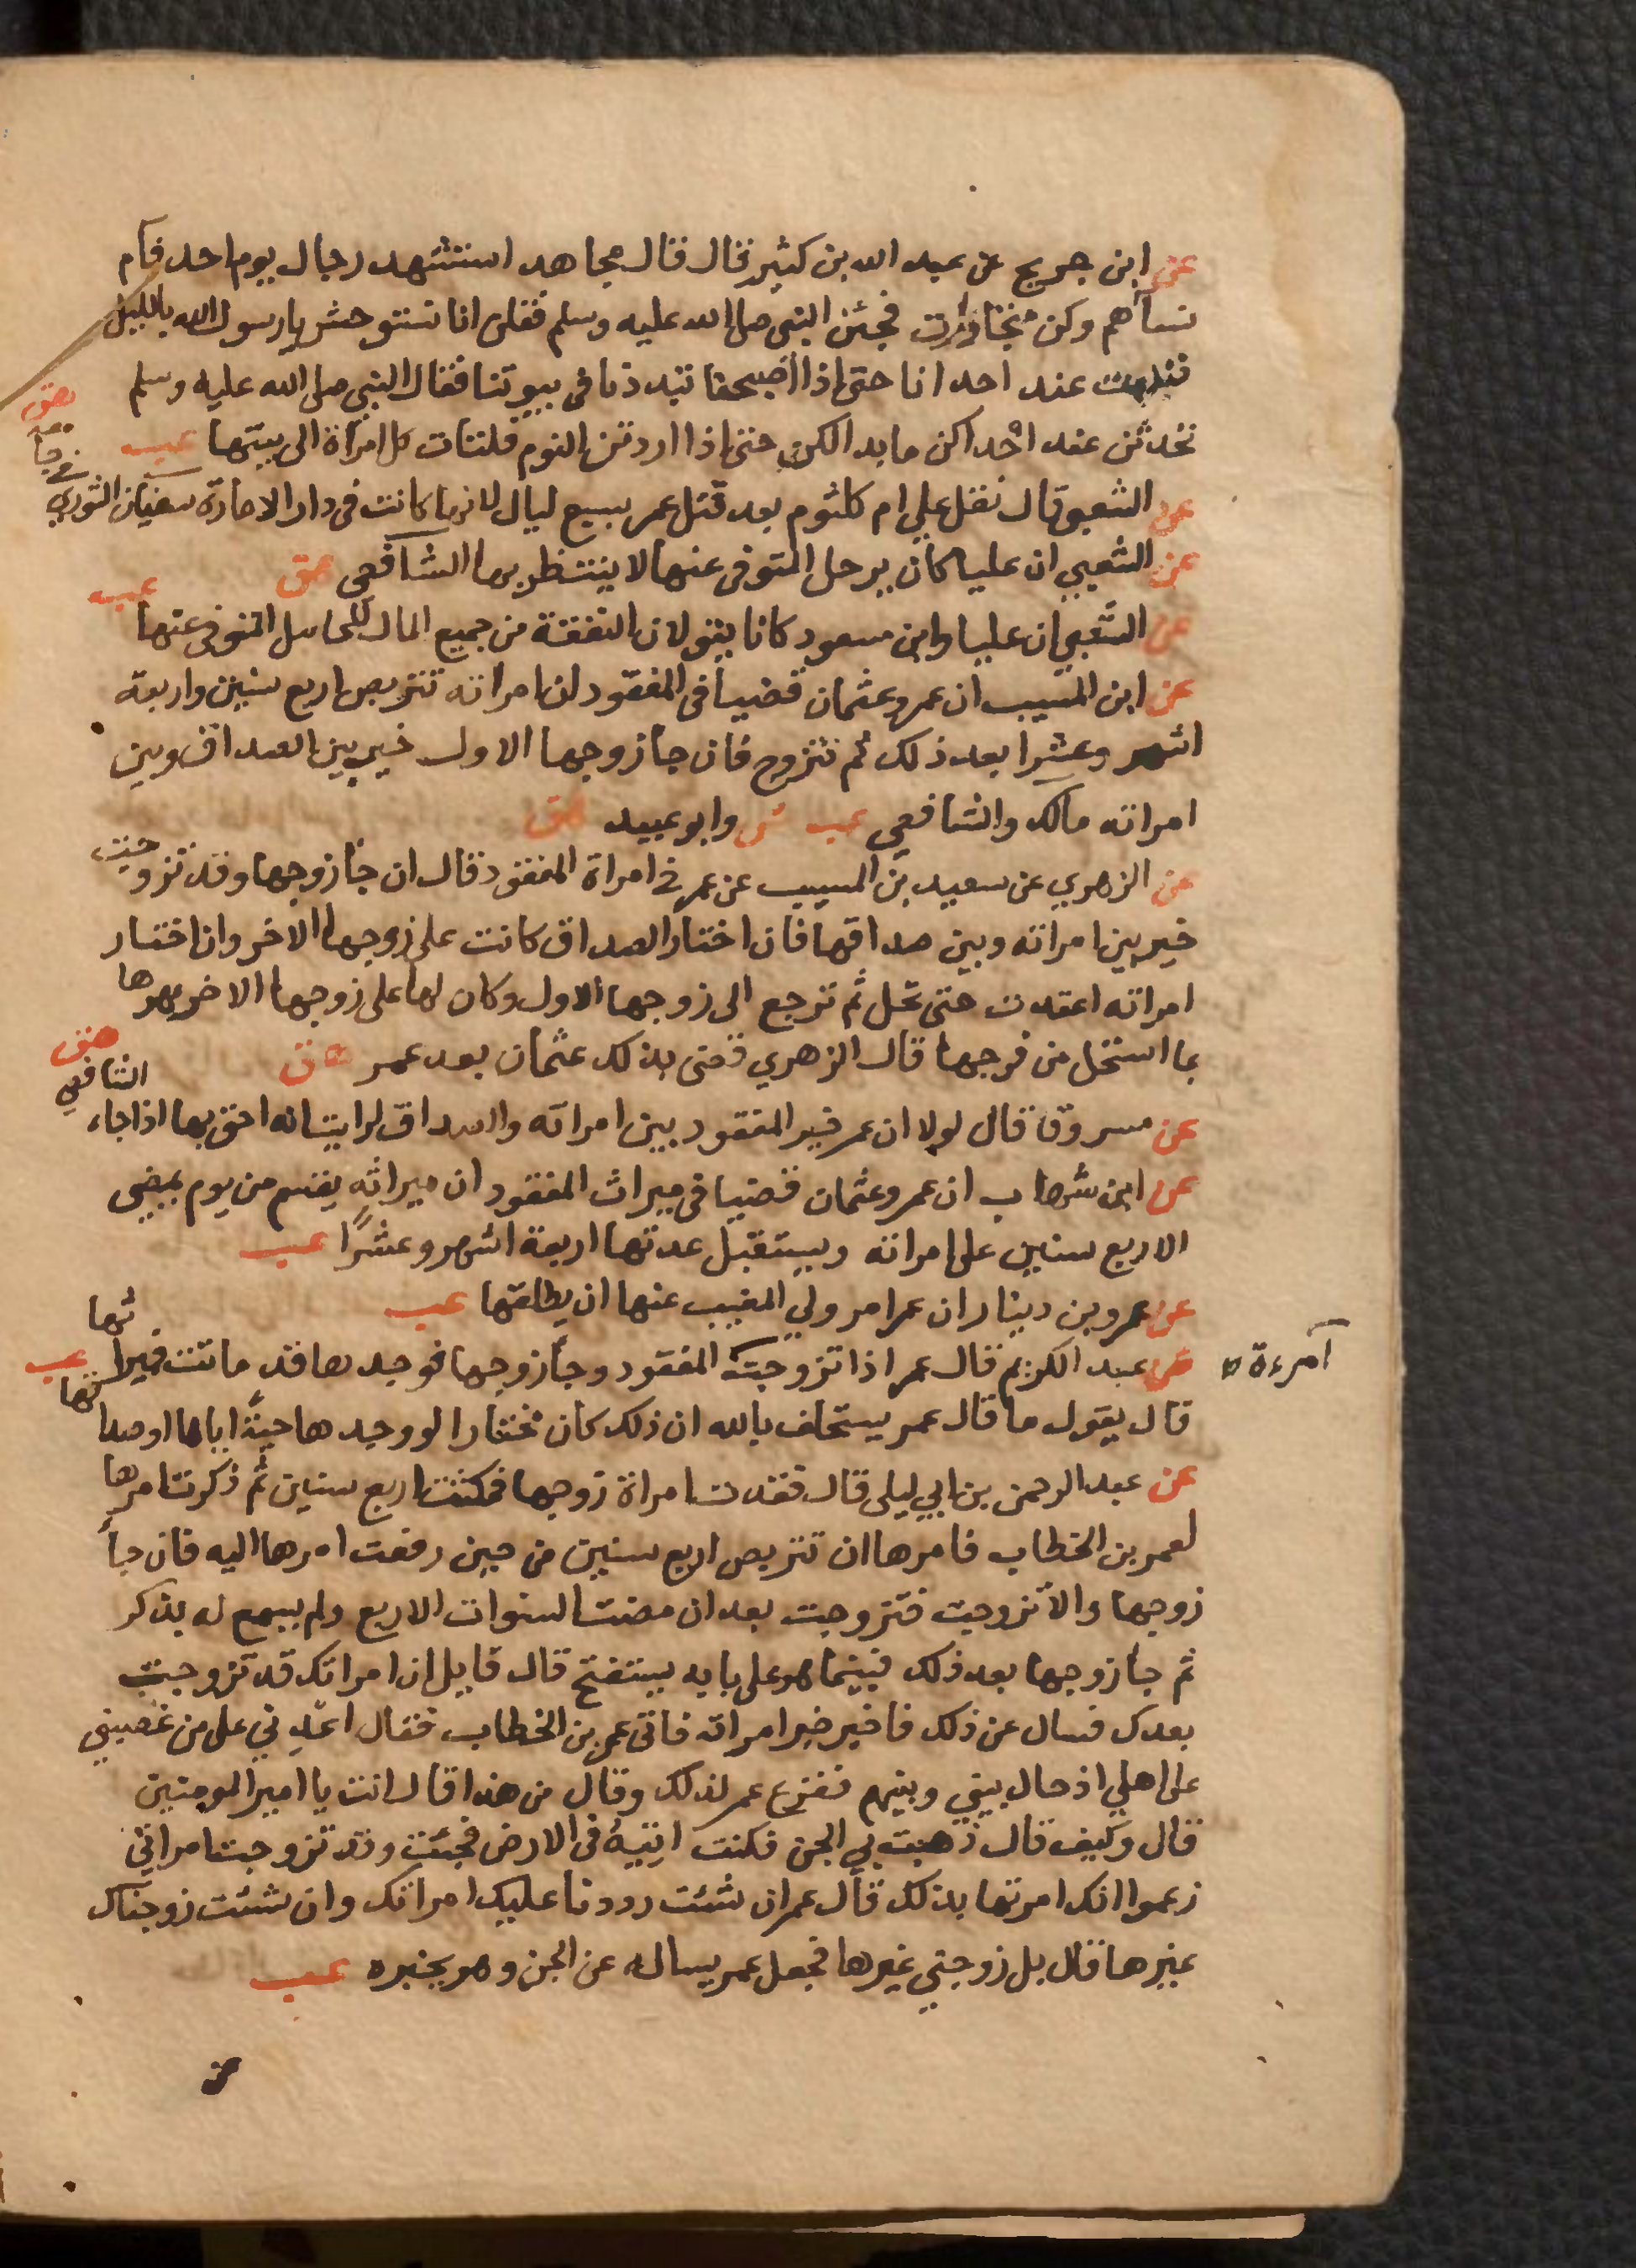 عن ابن جريج عن عبد الله بن كثير قال قال مجاهد استشهد رجال يوم احد فآم
نساهم وكن متجاورات فجئن النبي صلى الله عليه وسلم فقلن انا نستوحش يا رسول الله بالليل
فنبيت عند احدانا حتى اذا اصبحنا تبددنا في بيوتنا فقال النبي صلى الله عليه وسلم
تحدثن عند احداكن ما بدا لكن حتى اذا اردتن النوم فلتات كل امراة الى بيتها عب
عن الشعبي قال نقل علي ام كلثوم بعد قتل عمر بسبع ليال لانها كانت في دار الامارة سفيان الثوري
في جا
هق
عن الشعبي ان عليا كان يرحل المتوفى عنها لا ينتظر بها الشافعي هق
عن الشعبي ان عليا وابن مسعود كانا يقولان النفقة من جميع المال للحامل المتوفى عنها
عب
عن ابن المسيب ان عمر وعثمان قضيا في المفقود ان امراته تتربص اربع سنين واربعة
اشهر وعشرا بعد ذلك ثم تتزوج فان جا زوجها الاول خير بين الصداق وبين
امراته مالك والشافعي عب ش وابو عبيد هق
عن الزهري عن سعيد بن المسيب عن عمر في امراة المفقود قال ان جا زوجها وقد تزوجت
خير بين امراته وبين صداقها فان اختار الصداق كانت على زوجها الاخر وان اختار
امراته اعتدت حتى تحل ثم ترجع الى زوجها الاول وكان لها على زوجها الاخر مهرها
بما استحل من فرجها قال الزهري قضى بذلك عثمان بعد عمر ق
عن مسروق قال لولا ان عمر خير المفقود بين امراته والصداق لرايت انه احق بها اذا جاء
الشافعي
هق
عن ابن شهاب ان عمر وعثمان قضيا في ميراث المفقود ان ميراثه يقسم من يوم يمضي
الاربع سنين على امراته ويستقبل عدتها اربعة اشهر وعشرًا عب
عن عمرو بن دينار ان عمر امر ولي المغيب عنها ان يطلقها عب
عن عبد الكريم قال عمر اذا تزوجت المفقود وجا زوجها فوجدها قد ماتت فميراثها
امرءة
قال يقول ما قال عمر يستحلف بالله ان ذلك كان مختارا لو وجدها حيةً اياها او صداقها عب
عن عبد الرحمن بن ابي ليلى قال فقدت امراة زوجها فمكثت اربع سنين ثم ذكرت امرها
لعمر بن الخطاب فامرها ان تتربص اربع سنين من حين رفعت امرها اليه فان جا
زوجها والا تزوجت فتزوجت بعد ان مضت السنوات الاربع ولم يسمع له بذكر
ثم جا زوجها بعد ذلك فبينما هو على بابه يستفتح قال قايل ان امراتك قد تزوجت
بعدك فسال عن ذلك فاخبر خبر امراته فاتى عمر بن الخطاب فقال اعدني على من غصبني
على اهلي اذ حال بيني وبينهم ففزع عمر لذلك وقال من هذا قال انت يا امير المومنين
قال وكيف قال ذهبت بي الجن فكنت اتيه في الارض فجئت وقد تزوجت امراتي
زعموا انك امرتها بذلك قال عمر ان شئت رددنا عليك امراتك وان شئت زوجناك
غيرها قال بل زوجني غيرها فجعل عمر يساله عن الجن وهو يخبره عب
عن